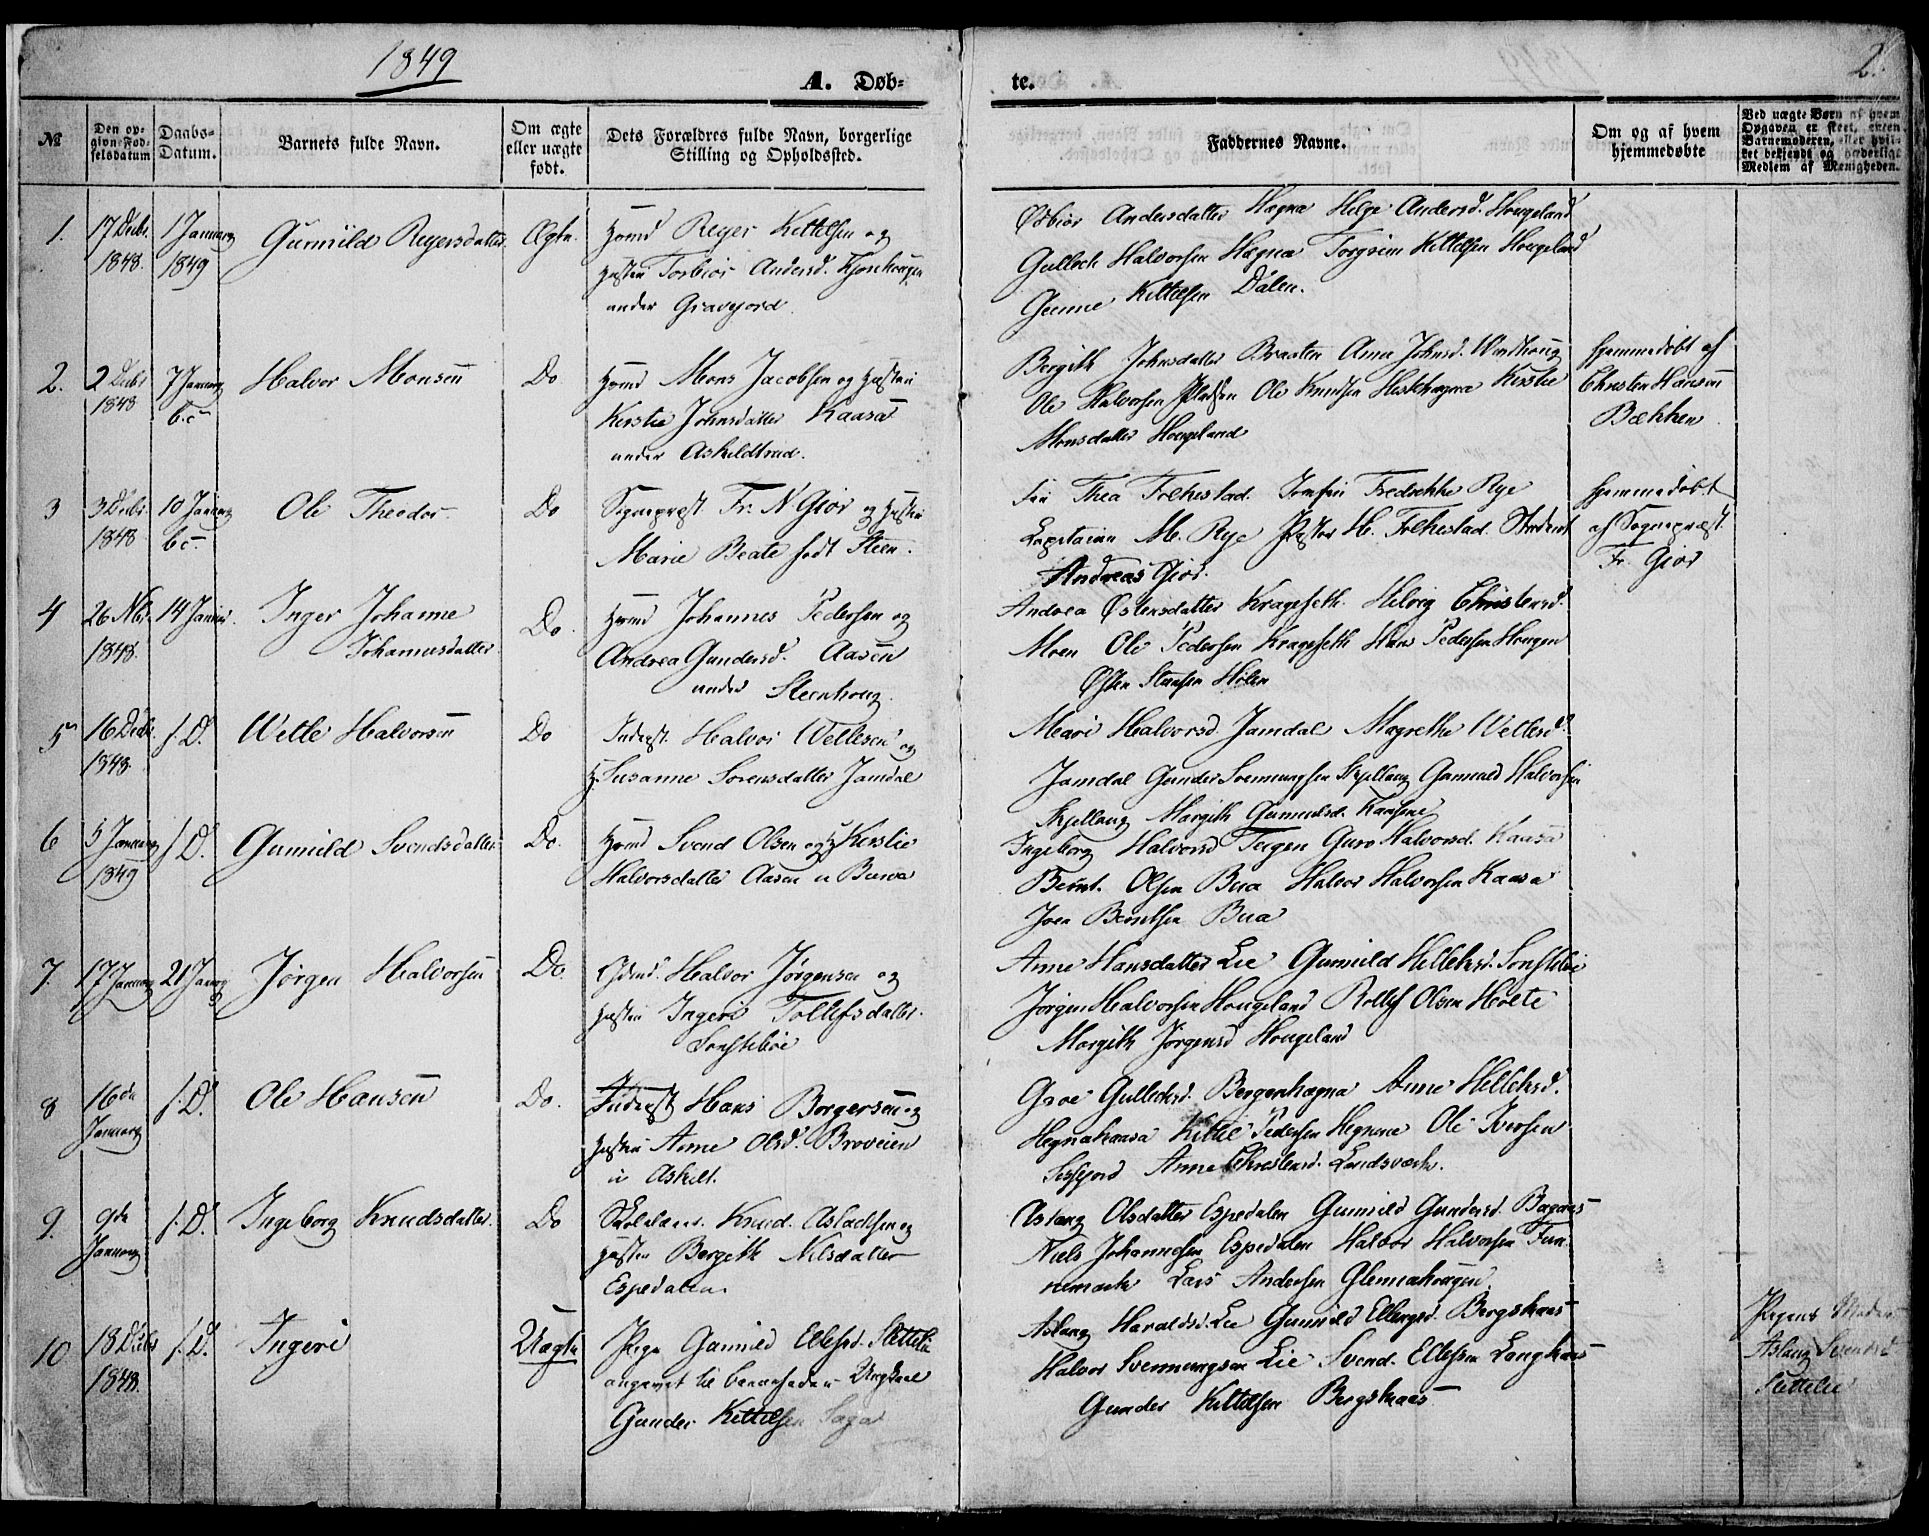 1849
2.
A. Døb-
te.
№
Den op-
givn Fød-
selsdatum
Daabs-
Datum.
Barnets fulde Navn.
Om ægte
eller uægte
født.
Dets Forældres fulde Navn, borgerlige
Stilling og Opholdssted.
Faddernes Navne.
Om og af hvem
hjemmedøbte
Ved uægte Børn af hvem
Opgaven er skeet, enten
Barnemoderen, eller hvil-
ket bekjendt og hæderligt
Medlem af Menigheden.
1.
17 Decbr.
1848.
1 January
1849
Gunnild Reyersdatter
Ægte.
Huusmd Reyer Kittelsen og
Hustru Torbior Andersd.
under Gravejord.
Andersdatter Hægna Helge Andersd. Hougeland
Gulleck Halvorsen Hægna Torgrim Kittelsen Hougeland
Gunne Kittelsen Dalen.
2.
2 Decbr
1848
7 January
Halvor Monsen
Do
Huusmd Mons Jacobsen og Hustru
Kirstie Johnsdatter Kaasa
under Askildtrud.
Bergith Johnsdatter Braaten Anne Johnsd.
Ole Halvorsen Ole Knudsen Kirstie
Monsdatter Hougeland
hjemmedøbt af
Christen Hansen
Bækken
3
3 Decbr.
1848
10 January
Ole Theodor
Do
Sognepræst Fr. N Giør og Hustru
Marie Beate født Steen.
Thea Frekestad. Jomfru Fredrikke Rye
Capitainn M. Rye Pastor H. Frekestad. Student
Andreas Giør.
hjemmedøbt
af Sognepræst
Fr. Giør
4
26 Nbr.
1848.
14 Januar.
Inger Johanne
Johannesdatter
Do.
Huusmd Johannes Pedersen og
Andrea Gundersd. Aasen
under Steenhoug.
Andrea Østensdatter Kragseth. Helvig Christensd.
Moen Ole Pedersen Kragseth Hans Pedersen Hougen
Østen Hølen
5
16 Decbr.
1848.
s. D.
Wetle Halvorsen
Do
Inderst. Halvor Wetlesen og
H. Susanne Sørensdatter Jamdal
Mari Halvorsd. Jamdal Magrethe Wetlesd.
Jamdal Gunder Svennungsen Skjellaug Gunnuld Halvorsen
Skjellaug Margith Gunnulsd.
6
5 January
1849
s. D.
Gunnild Svendsdatter
Do.
Huusmd Svend Olsen og H. Kirstie
Halvorsdatter Aasen u
Ingeborg Halvorsd Teigen Guro Halvorsd. Kaasa
Bernt. Olsen Bua Halvor Halvorsen Kaasa
Joen Berntsen Bua
7.
17 January
21 January
Jørgen Halvorsen
Do.
Gdmd. Halvor Jørgensen og
Hustru Ingeri Tollefsdatter.
Sønsteböe
Anne Hansdatter Lie Gunnild Hellehsd. Sønsteböe
Jørgen Halvorsen Hougeland Rollef Olsen Holte
Margith Jørgensd Hougeland
8
16de
January
s. D.
Ole Hansen
Do.
Inderst Hans Borgersen og
Hustru Anne Olsd. Broveien
u Askilt.
Groe Gullecksd. Bergenhægna Anne Hellehsd.
Hegnakaasa Kittil Pedersen Hegnene Ole Iversen
Anne Christensd. Landsværk.
9.
9de
January
s. D.
Ingeborg Knudsdatter.
Do
Skolelærer. Knud. Aslachsen og
Hustru Bergith Nilsdatter
Espedalen.
Aslaug Olsdatter Espedalen Gunnild Gundersd.
Niels Johannesen Espedalen Halvor Halvorsen Fun-
nemark Lars Andersen
10
18 Decbr
1848.
s. D.
Ingeri
Uægte
Pige Gunnild Ellefsd. Slettelie
angivet til barnefader Ungkarl
Gunder Kittilsen Saga
Aslaug Haraldsd. Lie Gunnild Ellingsd. Bergskaas
Halvor Svennungsen Lie Svend. Ellefsen Langkaas
Gunder Kittelsen Bergskaas
Pigens Moder
Aslaug Svendsd
Slettelie